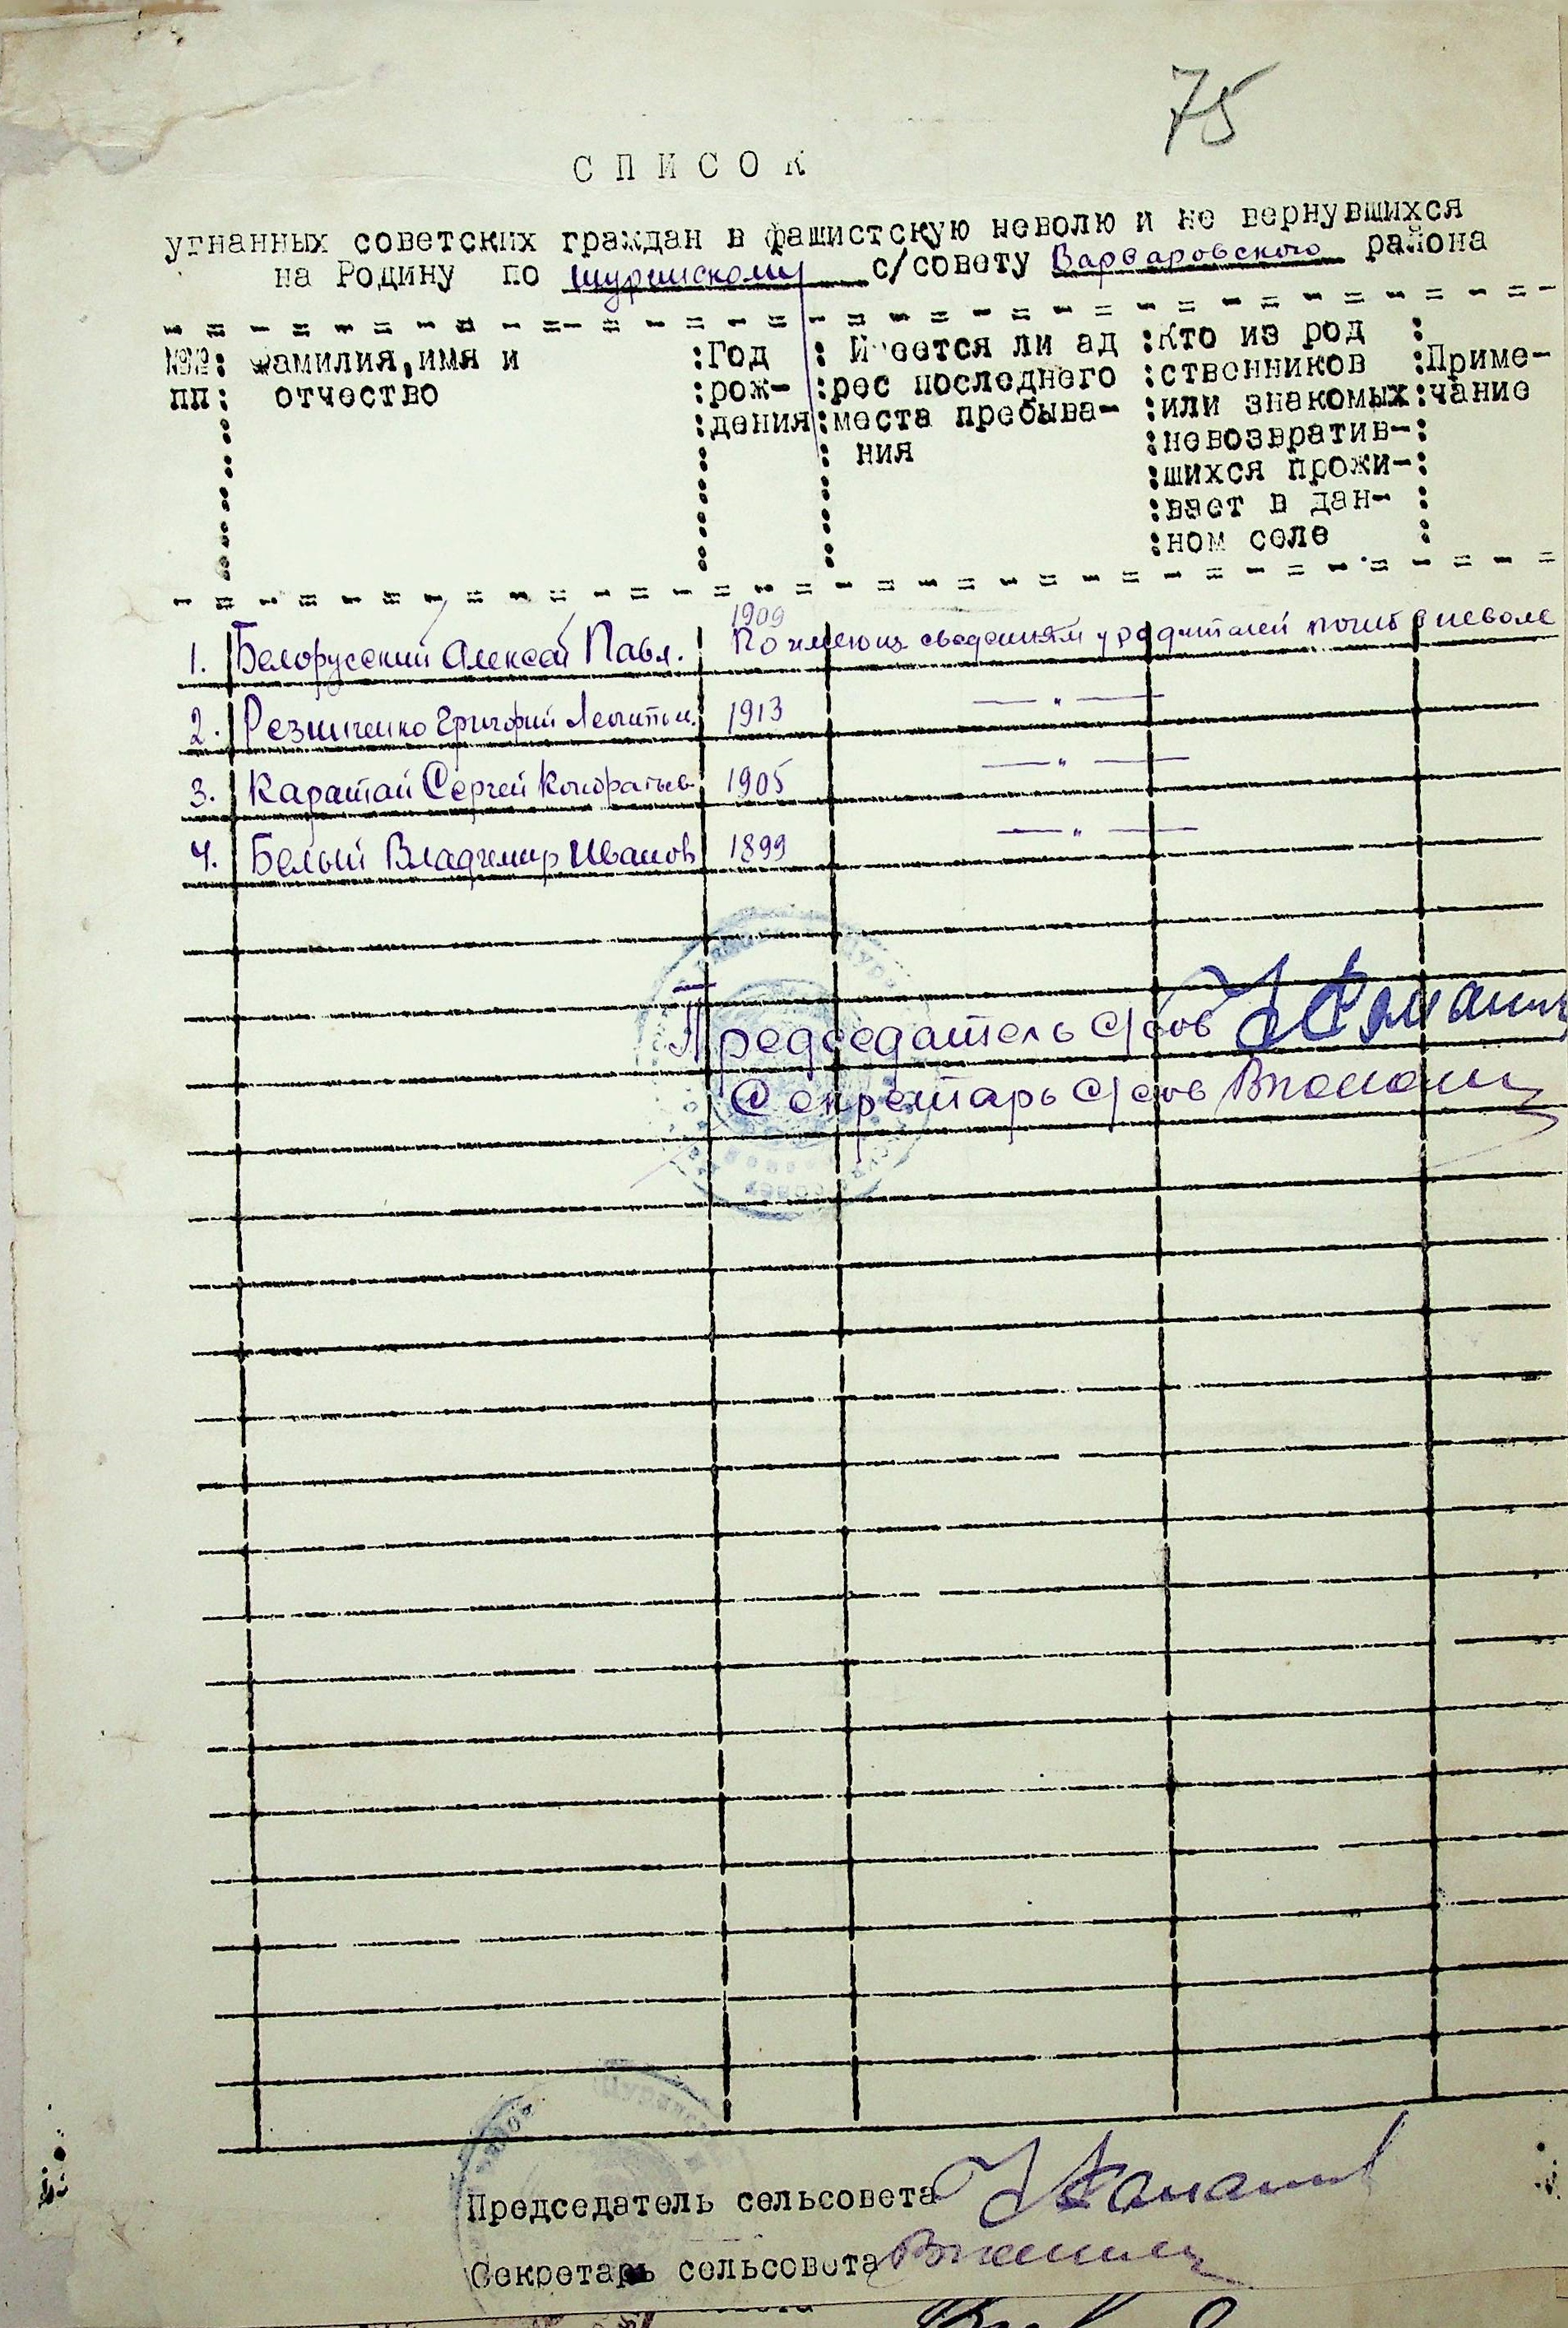 75
СПИСОК
угнанных советских граждан в фашистскую неволю и не вернувшихся
на Родину по Щуринскому с/совету Варваровского района
№№ : Фамилия, имя и : Год : Имеется ли ад : Кто из род :
пп : отчество : рож- : рес последнего : ственников : Приме-
: дения : места пребыва- : или знакомых : чание
: ния : невозвратив- :
: шихся прожи- :
: вает в дан- :
: ном селе :
1909
1. Белорусский Алексей Павл. По имеющ. сведениям у родителей погиб в неволе
2. Резниченко Григорий Леонтьи. 1913 — " —
3. Каратай Сергей Кондратьев. 1905 — " —
4. Белый Владимир Иванов 1899 — " —
Председатель с/сов
Секретарь с/сов
Председатель сельсовета
Секретарь сельсовета